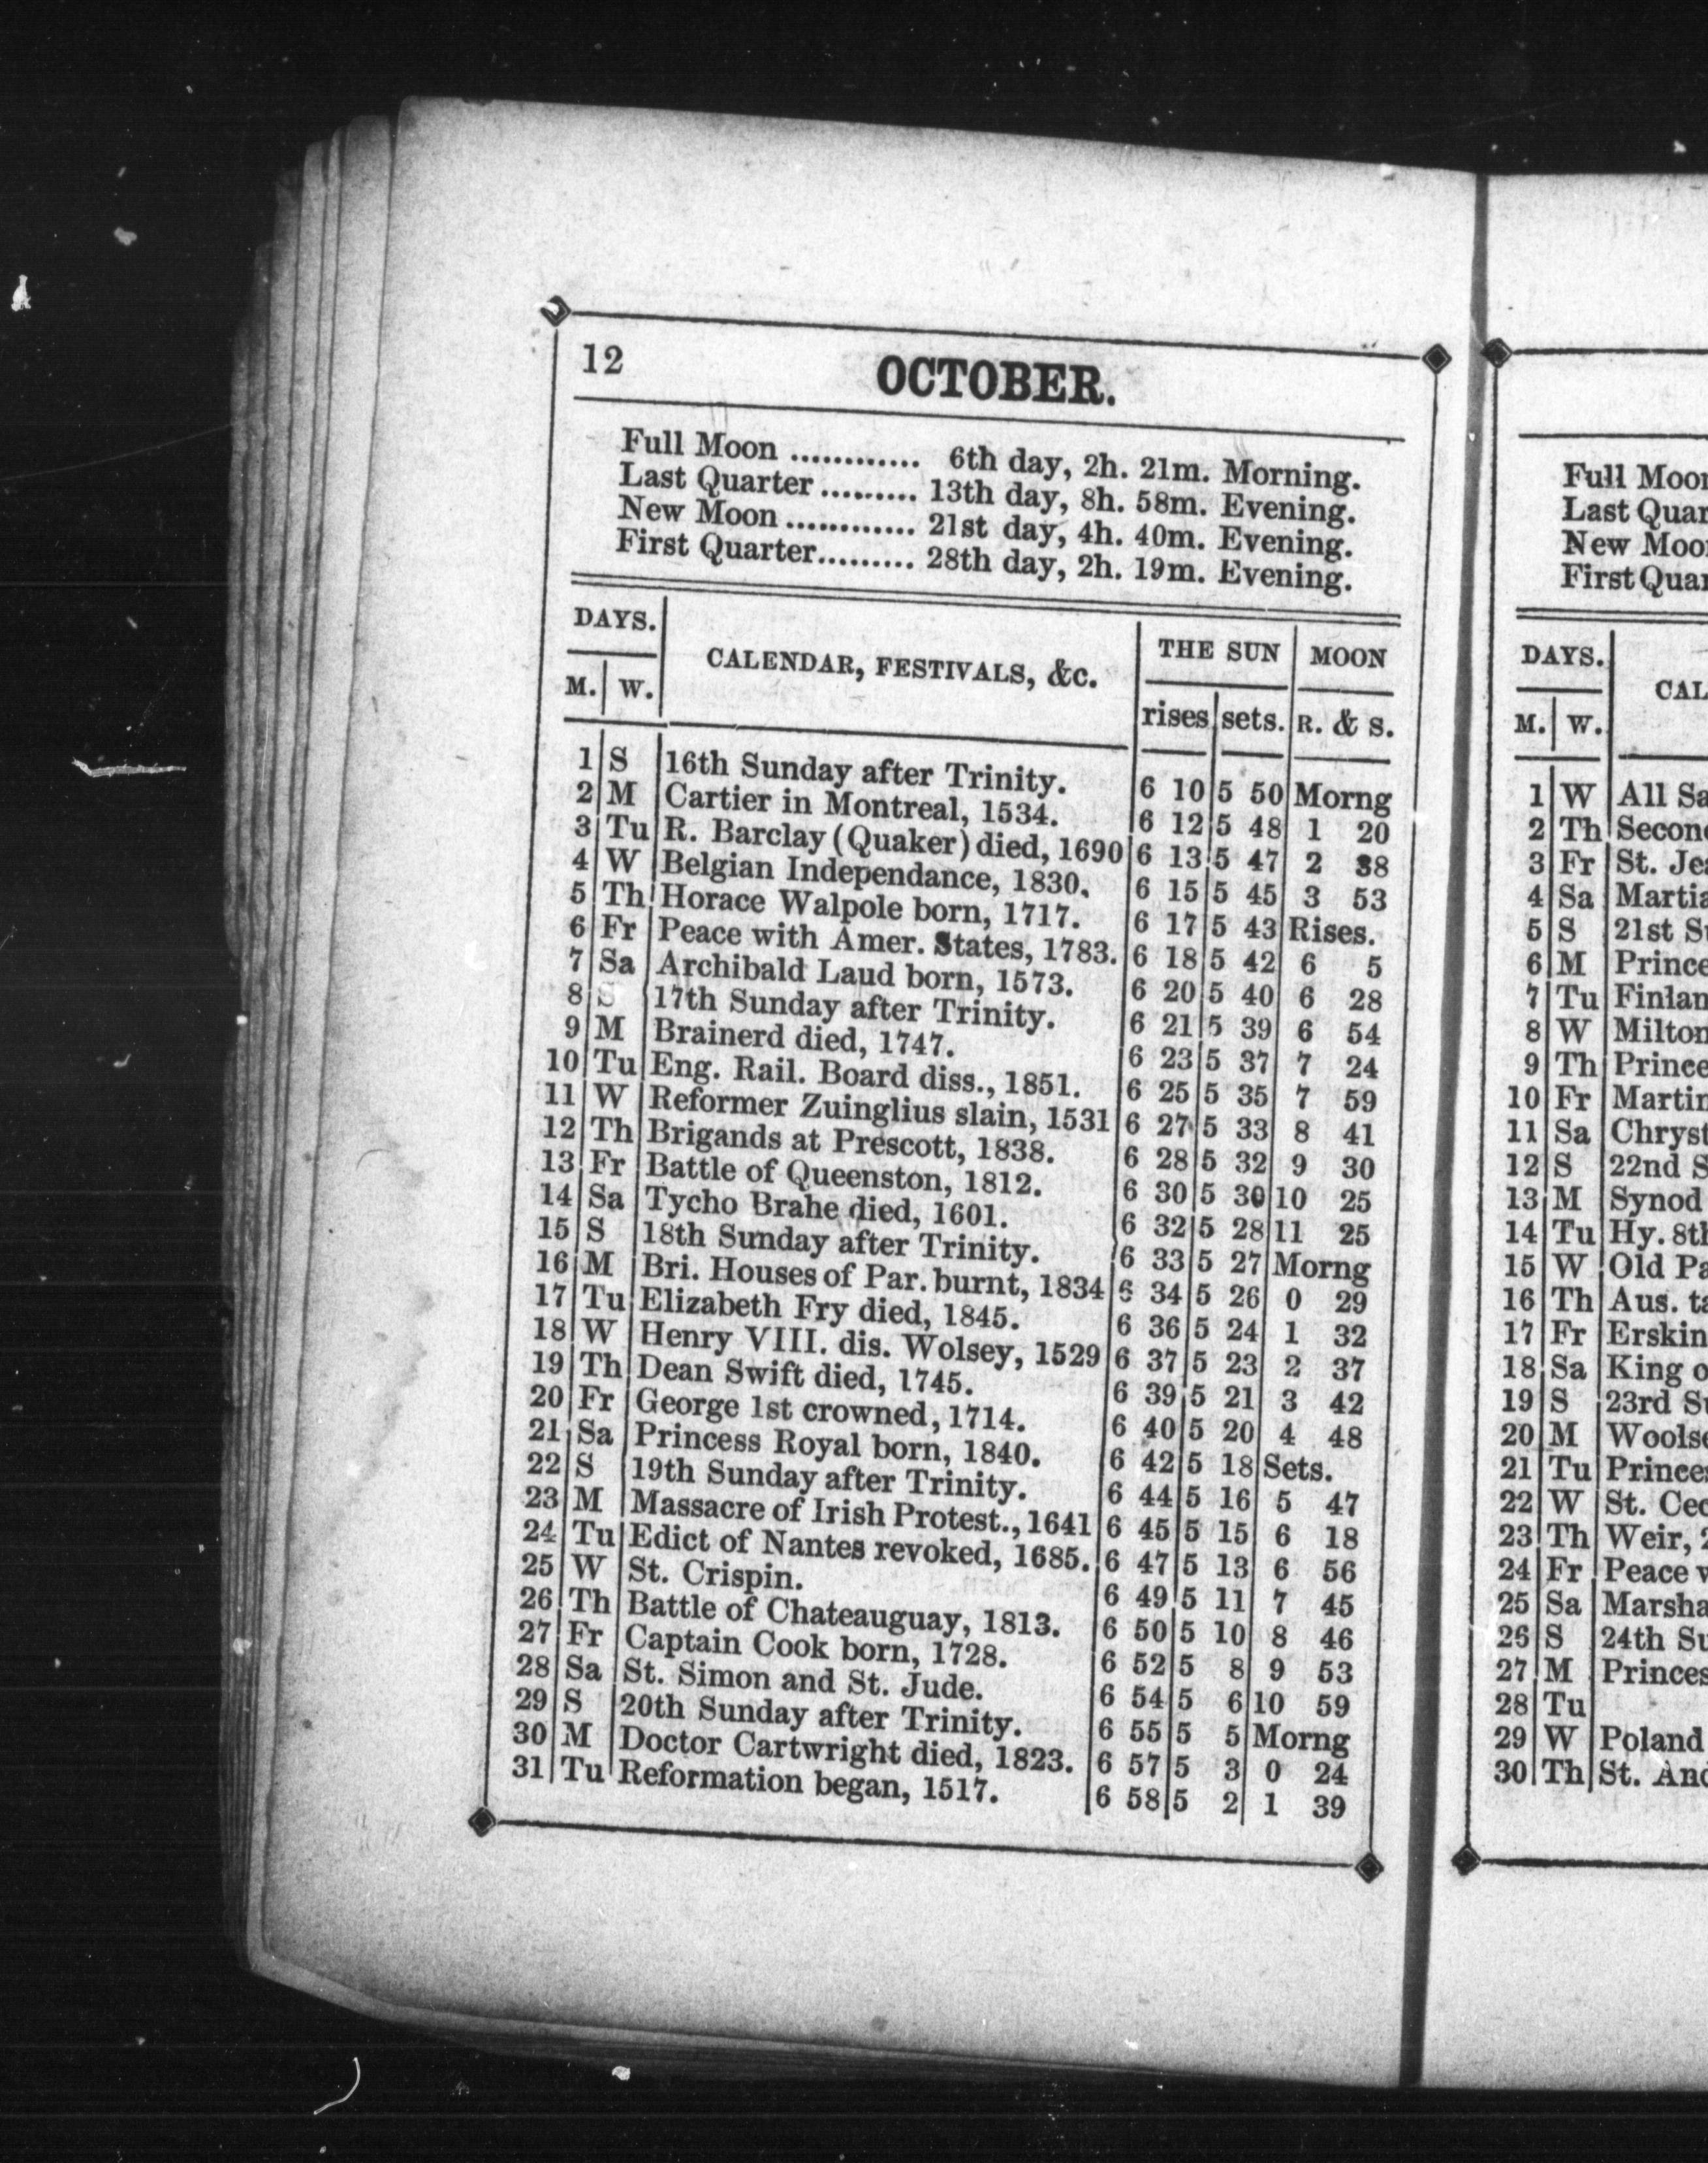 12
OCTOBER.
Full Moon ............ 6th day, 2h. 21m. Morning.
Last Quarter ......... 13th day, 8h. 58m. Evening.
New Moon ............ 21st day, 4h. 40m. Evening.
First Quarter......... 28th day, 2h. 19m. Evening.
DAYS. CALENDAR, FESTIVALS, &c. THE SUN MOON
M. W. rises sets. R. & S.
1 S 16th Sunday after Trinity. 6 10 5 50 Morng
2 M Cartier in Montreal, 1534. 6 12 5 48 1 20
3 Tu R. Barclay (Quaker) died, 1690 6 13 5 47 2 38
4 W Belgian Independance, 1830. 6 15 5 45 3 53
5 Th Horace Walpole born, 1717. 6 17 5 43 Rises.
6 Fr Peace with Amer. States, 1783. 6 18 5 42 6 5
7 Sa Archibald Laud born, 1573. 6 20 5 40 6 28
8 S 17th Sunday after Trinity. 6 21 5 39 6 54
9 M Brainerd died, 1747. 6 23 5 37 7 24
10 Tu Eng. Rail. Board diss., 1851. 6 25 5 35 7 59
11 W Reformer Zuinglius slain, 1531 6 27 5 33 8 41
12 Th Brigands at Prescott, 1838. 6 28 5 32 9 30
13 Fr Battle of Queenston, 1812. 6 30 5 30 10 25
14 Sa Tycho Brahe died, 1601. 6 32 5 28 11 25
15 S 18th Sunday after Trinity. 6 33 5 27 Morng
16 M Bri. Houses of Par. burnt, 1834 6 34 5 26 0 29
17 Tu Elizabeth Fry died, 1845. 6 36 5 24 1 32
18 W Henry VIII. dis. Wolsey, 1529 6 37 5 23 2 37
19 Th Dean Swift died, 1745. 6 39 5 21 3 42
20 Fr George 1st crowned, 1714. 6 40 5 20 4 48
21 Sa Princess Royal born, 1840. 6 42 5 18 Sets.
22 S 19th Sunday after Trinity. 6 44 5 16 5 47
23 M Massacre of Irish Protest., 1641 6 45 5 15 6 18
24 Tu Edict of Nantes revoked, 1685. 6 47 5 13 6 56
25 W St. Crispin. 6 49 5 11 7 45
26 Th Battle of Chateauguay, 1813. 6 50 5 10 8 46
27 Fr Captain Cook born, 1728. 6 52 5 8 9 53
28 Sa St. Simon and St. Jude. 6 54 5 6 10 59
29 S 20th Sunday after Trinity. 6 55 5 5 Morng
30 M Doctor Cartwright died, 1823. 6 57 5 3 0 24
31 Tu Reformation began, 1517. 6 58 5 2 1 39
Full Moon
Last Quar
New Moo
First Quar
DAYS. CAL
M. W.
1 W All Sa
2 Th Second
3 Fr St. Je
4 Sa Martia
5 S 21st Su
6 M Prince
7 Tu Finlan
8 W Milton
9 Th Prince
10 Fr Martin
11 Sa Chryst
12 S 22nd S
13 M Synod
14 Tu Hy. 8th
15 W Old Pa
16 Th Aus. ta
17 Fr Erskin
18 Sa King o
19 S 23rd Su
20 M Woolse
21 Tu Princes
22 W St. Cec
23 Th Weir, 2
24 Fr Peace w
25 Sa Marsha
26 S 24th Su
27 M Princes
28 Tu
29 W Poland
30 Th St. And